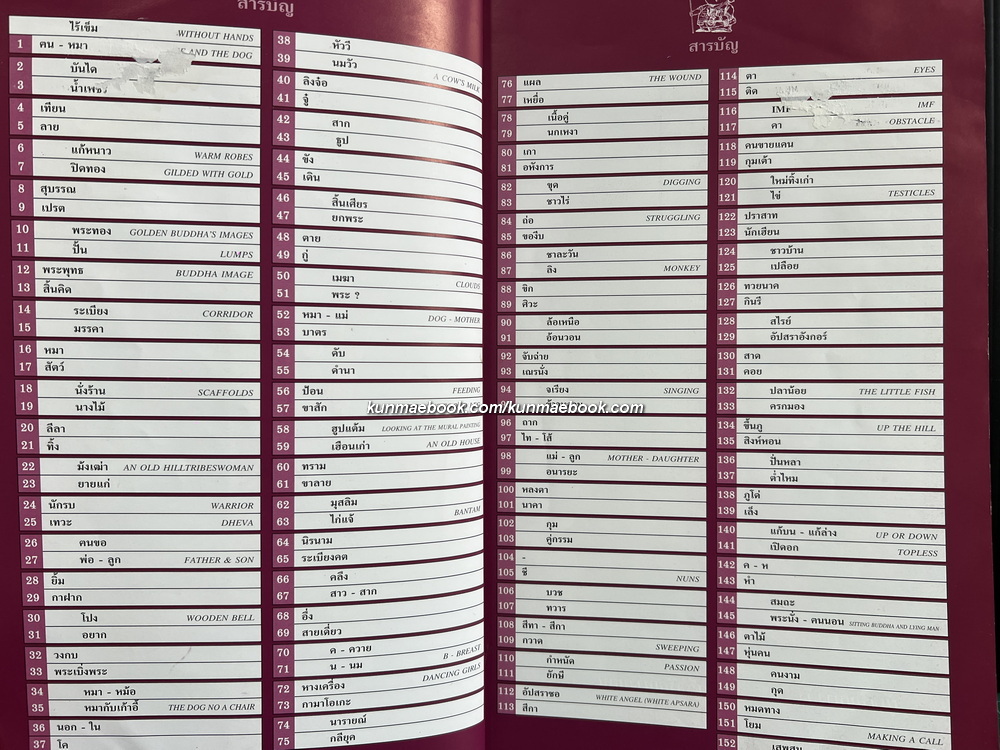 สารบัญ
ไร้เข็ม WITHOUT HANDS
1 คน - หมา AND THE DOG
2 บันได
3
4 เทียน
5 ลาย
6 แก้หนาว WARM ROBES
7 ปิดทอง GILDED WITH GOLD
8 สุบรรณ
9 เปรต
10 พระทอง GOLDEN BUDDHA'S IMAGES
11 ปั้น LUMPS
12 พระพุทธ BUDDHA IMAGE
13 สิ้นคิด
14 ระเบียง CORRIDOR
15 มรรคา
16 หมา
17 สัตว์
18 นั่งร้าน SCAFFOLDS
19 นางไม้
20 ลีลา
21 ทิ้ง
22 ม้งเฒ่า AN OLD HILLTRIBESWOMAN
23 ยายแก่
24 นักรบ WARRIOR
25 เทวะ DHEVA
26 คนขอ
27 พ่อ - ลูก FATHER & SON
28 ยิ้ม
29 กาฝาก
30 โปง WOODEN BELL
31 อยาก
32 วงกบ
33 พระเบิ่งพระ
34 หมา - หม้อ
35 หมากับเก้าอี้ THE DOG NO A CHAIR
36 นอก - ใน
37 โด
38 หัววี
39 นมวัว A COW'S MILK
40 ลิงจ๋อ
41 จู๋
42 สาก
43 ธูป
44 ขัง
45 เดิน
46 สิ้นเศียร
47 ยกพระ
48 ดาย
49 กู่
50 เมฆา CLOUDS
51 พระ ?
52 หมา - แม่ DOG - MOTHER
53 บาตร
54 ดับ
55 ดำนา
56 ป้อน FEEDING
57 ขาสัก
58 ฮูปแต้ม LOOKING AT THE MURAL PAINTING
59 เฮือนเก่า AN OLD HOUSE
60 ทราม
61 ขาลาย
62 มุสลิม
63 ไก่แจ้ BANTAM
64 นิรนาม
65 ระเบียงคต
66 คลึง
67 สาว - สาก
68 อึ่ง
69 สายเดี่ยว
70 ค - ควาย
71 น - นม B - BREAST
72 หางเครื่อง DANCING GIRLS
73 กามาโอเกะ
74 นารายณ์
75 กลียุค
สารบัญ
76 แผล THE WOUND
77 เหยื่อ
78 เนื้อคู่
79 นกเหงา
80 เกา
81 อหังการ
82 ขุด DIGGING
83 ชาวไร่
84 ถ่อ STRUGGLING
85 ของีบ
86 ชาละวัน
87 ลิง MONKEY
88 ชิก
89 ศิวะ
90 ล้อเหนือ
91 อ้อนวอน
92 จับฉ่าย
93 เณรนั่ง
94 จเรียง SINGING
kunmaebook.com/kunmaebook.com
96 ถาก
97 ไท - โส้
98 แม่ - ลูก MOTHER - DAUGHTER
99 อนารยะ
100 หลงตา
101 นาคา
102 กุม
103 คู่กรรม
104 -
105 ชี NUNS
106 บวช
107 ทวาร
108 สีทา - สีกา
109 กวาด SWEEPING
110 กำหนัด PASSION
111 ยักษี
112 อัปสราขอ WHITE ANGEL (WHITE APSARA)
113 สีกา
114 ตา EYES
115 ติด
116 IMF IMF
117 คา OBSTACLE
118 คนขายแคน
119 กุมเต้า
120 ใหม่ทิ้งเก่า
121 ไข่ TESTICLES
122 ปราสาท
123 นักเฮียน
124 ชาวบ้าน
125 เปลือย
126 ทวยนาค
127 กินรี
128 สไรย์
129 อัปสราอังกอร์
130 สาด
131 คอย
132 ปลาน้อย THE LITTLE FISH
133 ครกมอง
134 ขึ้นภู UP THE HILL
135 สิงห์หอน
136 ปั่นหลา
137 ต่ำไหม
138 ภูโด่
139 เล็ง
140 แก้บน - แก้ล่าง UP OR DOWN
141 เปิดอก TOPLESS
142 ค - ห
143 หำ
144 สมถะ
145 พระนั่ง - คนนอน SITTING BUDDHA AND LYING MAN
146 ตาไม้
147 หุ่นคน
148 คนงาม
149 กุด
150 หมดทาง
151 โยม MAKING A CALL
152